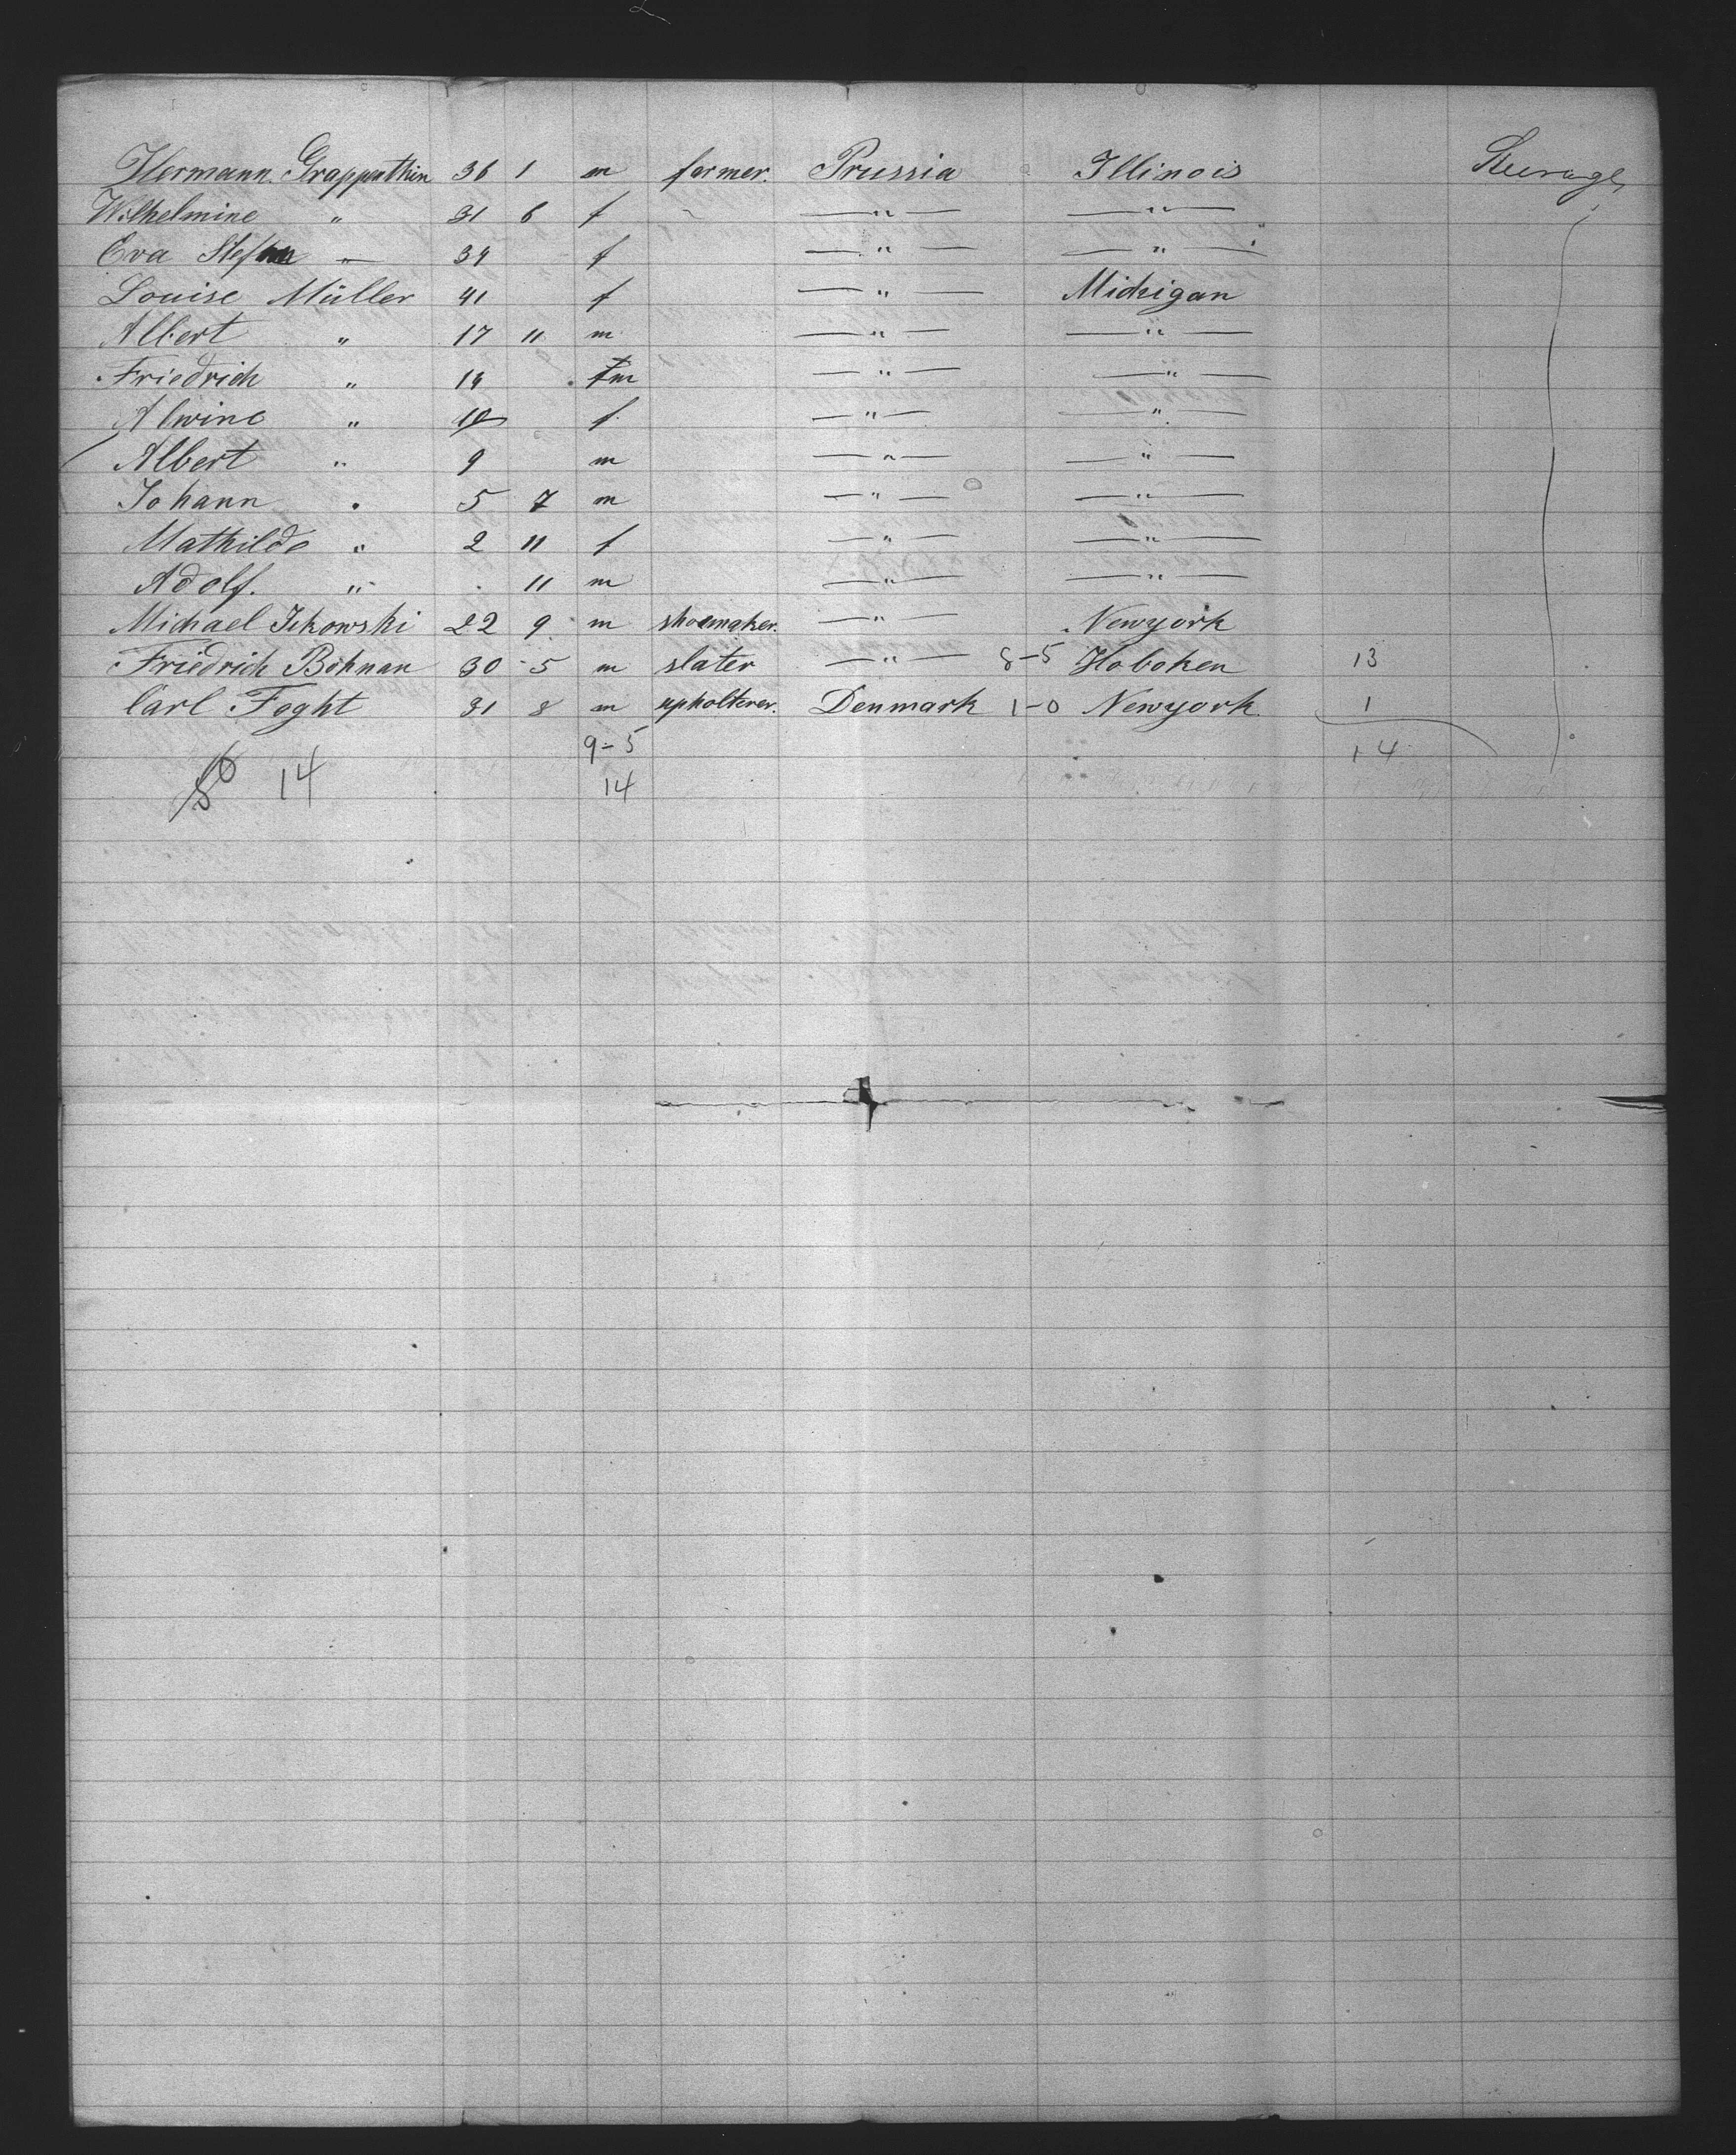 Hermann. Grappenthin 36 1 m farmer. Prussia Illinois Steerage
Wilhelmine " 31 6 f ~ —"— —"—
Eva " 34 f —"— —"—
Louise Müller 41 f —"— Michigan
Albert " 17 11 m —"— —"—
Friedrich " 14 m —"— —"—
Alwine " 10 f. —"— —"—
Albert " 9 m —"— —"—
Johann " 5 7 m —"— —"—
Mathilde " 2 11 f —"— —"—
Adolf. " . 11 m —"— —"—
Michael Ickowski 22 9 m shoemaker. —"— Newyork
Friedrich Bohnan 30 5 m slater —"— 8-5 Hoboken 13
Carl Foght 31 8 m upholterer. Denmark 1-0 Newyork. 1
9-5 14
14 14